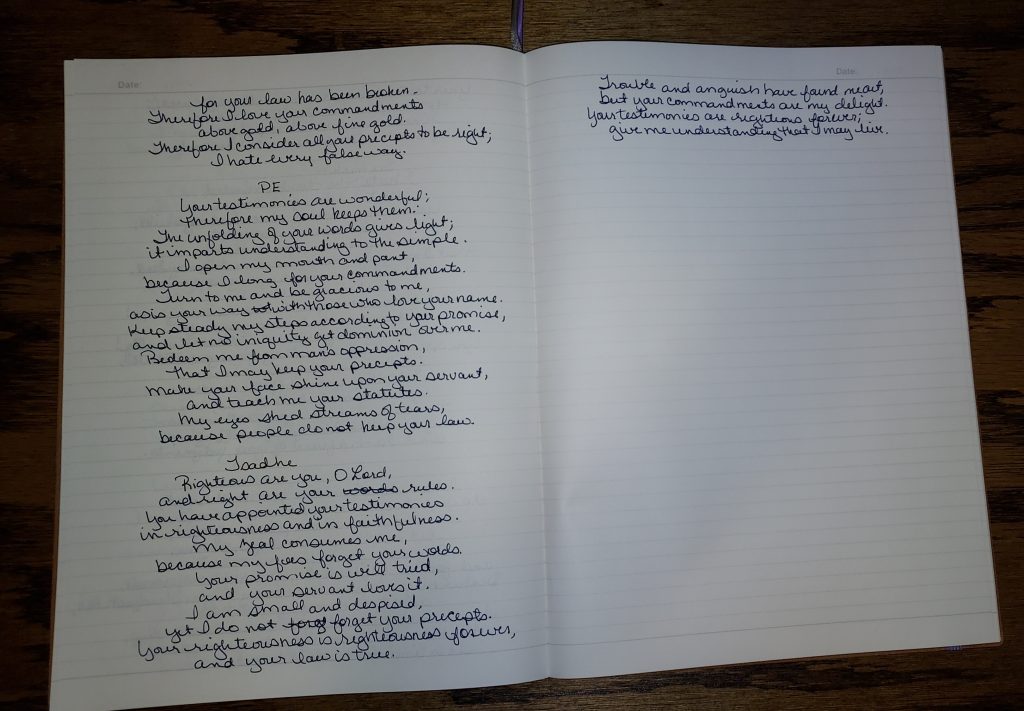 Date:
for your law has been broken.
Therefore I love your commandments
above gold, above fine gold.
Therefore I consider all your precepts to be right;
I hate every false way.
PE
Your testimonies are wonderful;
therefore my soul keeps them.
The unfolding of your words gives light;
it imparts understanding to the simple.
I open my mouth and pant,
because I long for your commandments.
Turn to me and be gracious to me,
as is your way with those who love your name.
Keep steady my steps according to your promise,
and let no iniquity get dominion over me.
Redeem me from man's oppression,
that I may keep your precepts.
Make your face shine upon your servant,
and teach me your statutes.
My eyes shed streams of tears,
because people do not keep your law.
Tsadhe
Righteous are you, O Lord,
and right are your words rules.
You have appointed your testimonies
in righteousness and in faithfulness.
My zeal consumes me,
because my foes forget your words.
Your promise is well tried,
and your servant loves it.
I am small and despised,
yet I do not forg forget your precepts.
Your righteousness is righteousness forever,
and your law is true.
Date:
Trouble and anguish have found me out,
but your commandments are my delight.
Your testimonies are righteous forever;
give me understanding that I may live.